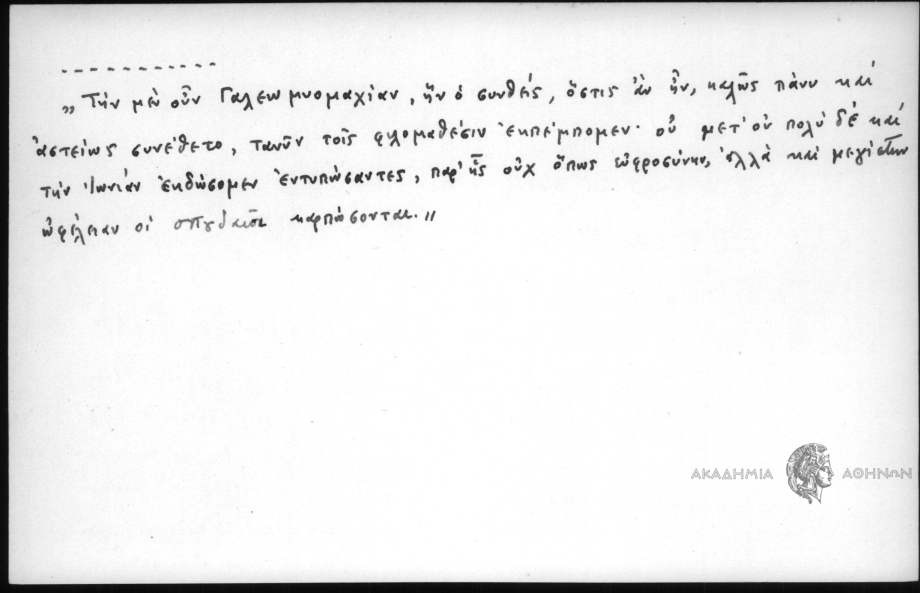 -----------
„ Τὴν μὲν οὖν Γαλεωμυομαχίαν, ἣν ὁ συνθείς, ὅστις ἂν ἦν, καλῶς πάνυ καὶ
ἀστείως συνέθετο, τανῦν τοῖς φιλομαθέσιν ἐκπέμπομεν· οὐ μετ' οὐ πολὺ δὲ καὶ
τὴν Ἰωνιὰν ἐκδώσομεν ἐντυπώσαντες, παρ' ἧς οὐχ ὅπως εὐφροσύνην, ἀλλὰ καὶ μεγίστην
ὠφέλειαν οἱ σπουδαῖοι καρπώσονται. "
ΑΚΑΔΗΜΙΑ ΑΘΗΝΩΝ